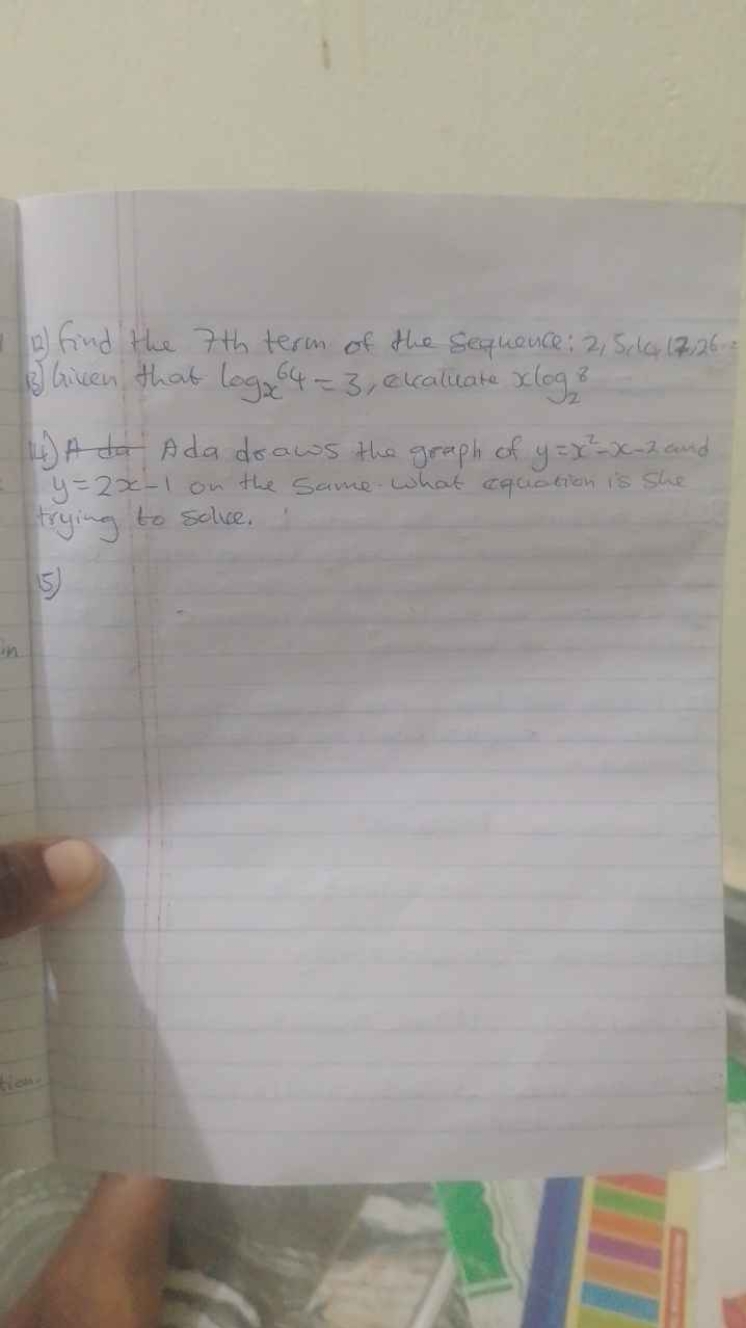 12) find the 7th term of the sequence: 2, 5, 10, 17, 26
13) Given that logₓ64 = 3, evaluate xlog₂8
14) A da Ada draws the graph of y=x²-x-2 and
y=2x-1 on the same. what equation is she
trying to solve.
15)
in
tion.